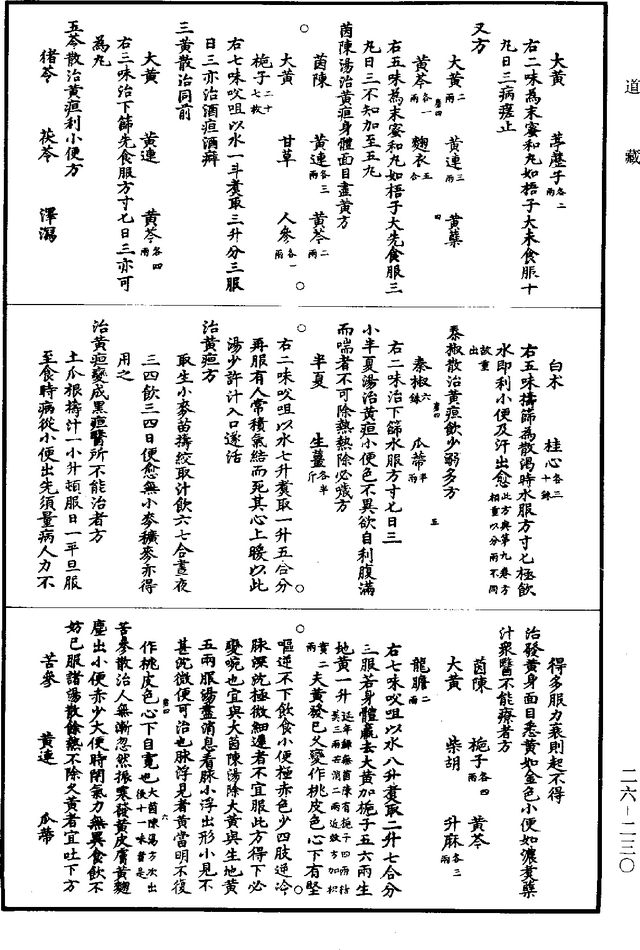 道藏
大黃 葶藶子各二兩
右二味為末蜜和丸如梧子大未食服十
丸日三病瘥止
又方
大黃二兩 黃連三兩 黃蘗四
黃芩各一兩 麴衣五合
右五味為末蜜和丸如梧子大先食服三
丸日三不知加至五丸
茵陳湯治黃疸身體面目盡黃方
茵陳 黃連各三兩 黃芩二兩
大黃 甘草 人參各一兩
梔子二十七枚
右七味㕮咀以水一斗煑取三升分三服
日三亦治酒疸酒癖
三黃散治同前
大黃 黃連 黃芩各四兩
右三味治下篩先食服方寸七日三亦可
為丸
五苓散治黃疸利小便方
猪苓 茯苓 澤瀉
白术 桂心各三十銖
右五味擣篩為散渴時水服方寸七極飲
水即利小便及汗出愈此方與第九卷方相重以分兩不同故重出
秦椒散治黃疸飲少溺多方
秦椒六銖 瓜蒂半兩
右二味治下篩水服方寸七日三
小半夏湯治黃疸小便色不異欲自利腹滿
而喘者不可除熱熱除必噦方
半夏 生薑各半斤
右二味㕮咀以水七升煑取一升五合分
再服有人常積氣結而死其心上暖以此
湯少許汁入口遂活
治黃疸方
取生小麥苗擣絞取汁飲六七合晝夜
三四飲三四日便愈無小麥穬麥亦得
用之
治黃疸變成黑疸醫所不能治者方
土瓜根擣汁一小升頓服日一平旦服
至食時病從小便出先須量病人力不
得多服力衰則起不得
治發黃身面目悉黃如金色小便如濃煑蘗
汁衆醫不能療者方
茵陳 梔子各四兩 黃芩
大黃 柴胡 升麻各三兩
龍膽二兩
右七味㕮咀以水八升煑取二升七合分
三服若身體羸去大黃加梔子五六兩生
地黃一升
實二兩夫黃發已久變作桃皮色心下有堅
嘔逆不下飲食小便極赤色少四肢逆冷
脉深沉極微細遲者不宜服此方得下必
變噦也宜與大茵陳湯除大黃與生地黃
五兩服湯盡消息看脉小浮出形小見不
甚沉微便可治也脉浮見者黃當明不復
作桃皮色心下自寬也大茵陳湯方次出後十一味者是
苦參散治人無漸忽然振寒發黃皮膚黃麴
塵出小便赤少大便時閉氣力無異食飲不
妨已服諸湯散餘熱不除久黃者宜吐下方
苦參 黃連 瓜蒂
二六一二三〇